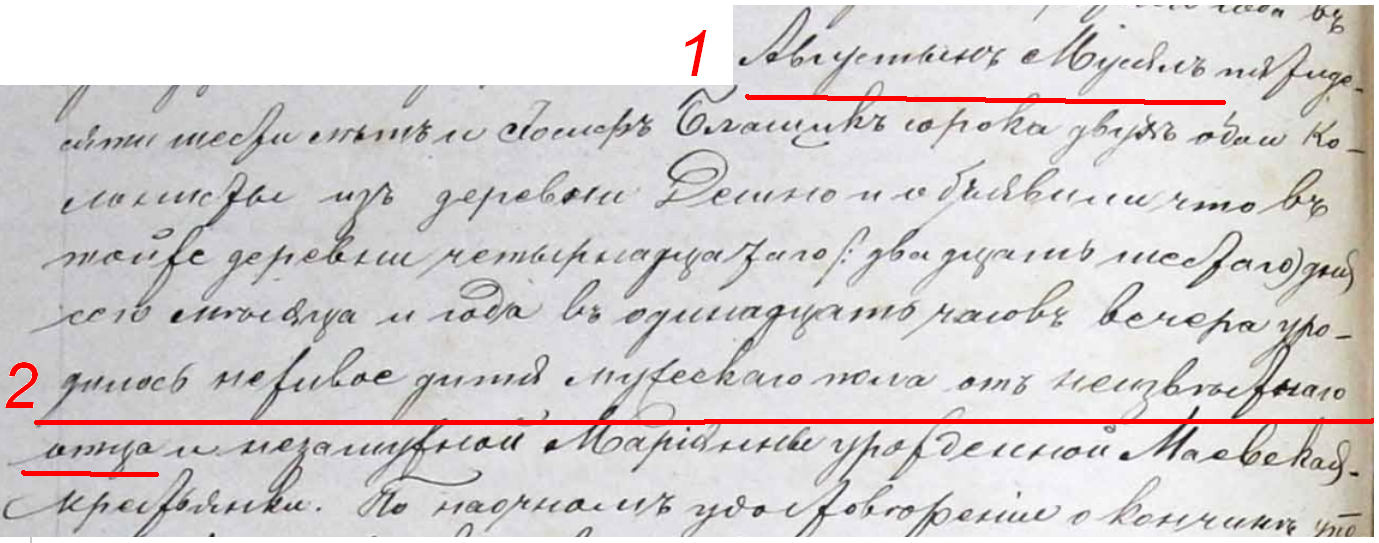 1
Августынъ Мусялъ пятьде-
сяти шести лѣтъ и Іосифъ Блащикъ сорока двухъ оба Ко-
лонисты изъ деревни Дешно и объявили что въ
тойже деревни четырнадцатаго /: двадцать шестаго) дня
сего мѣсяца и года въ одинадцать часовъ вечера уро-
2
дилось неживое дитя мужескаго пола отъ неизвѣстнаго
отца и незамужной Маріянны урожденной Маевской-
крестьянки. По наочномъ удостовореніи о кончинѣ